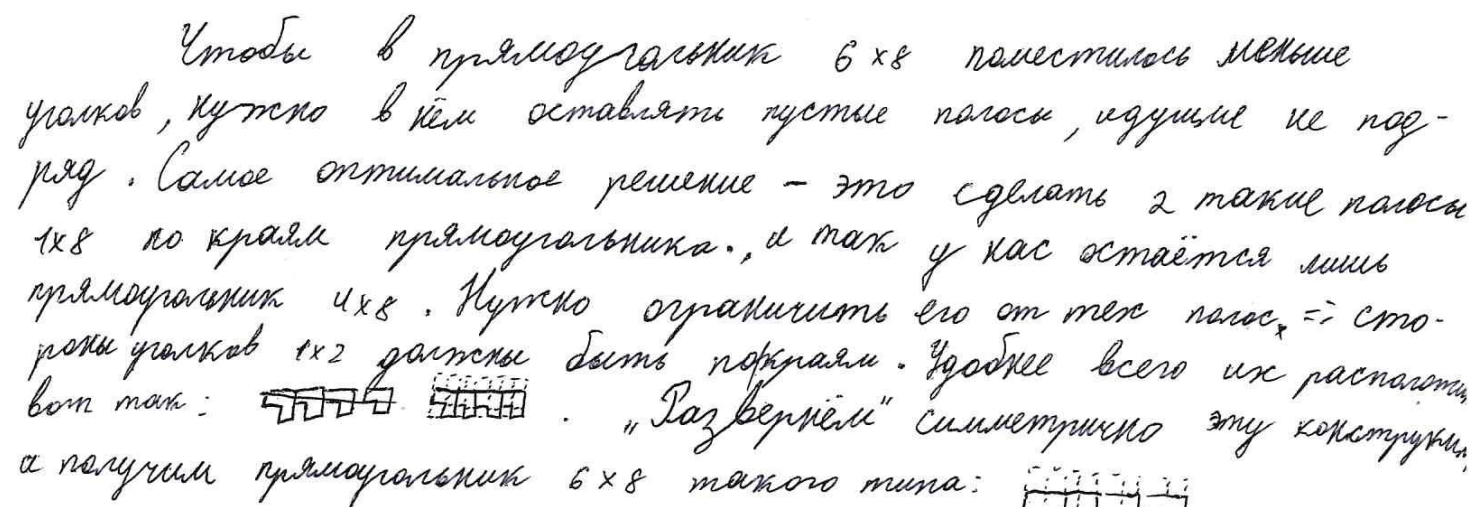 Чтобы в прямоугольник 6×8 поместилось меньше
уголков, нужно в нём оставлять пустые полосы, идущие не под-
ряд. Самое оптимальное решение – это сделать 2 такие полосы
1×8 по краям прямоугольника., и так у нас остаётся лишь
прямоугольник 4×8. Нужно ограничить его от тех полос, => сто-
роны уголков 1×2 должны быть по краям. Удобнее всего их расположить
вот так: . „Развернём" симметрично эту конструкци
и получим прямоугольник 6×8 такого типа: